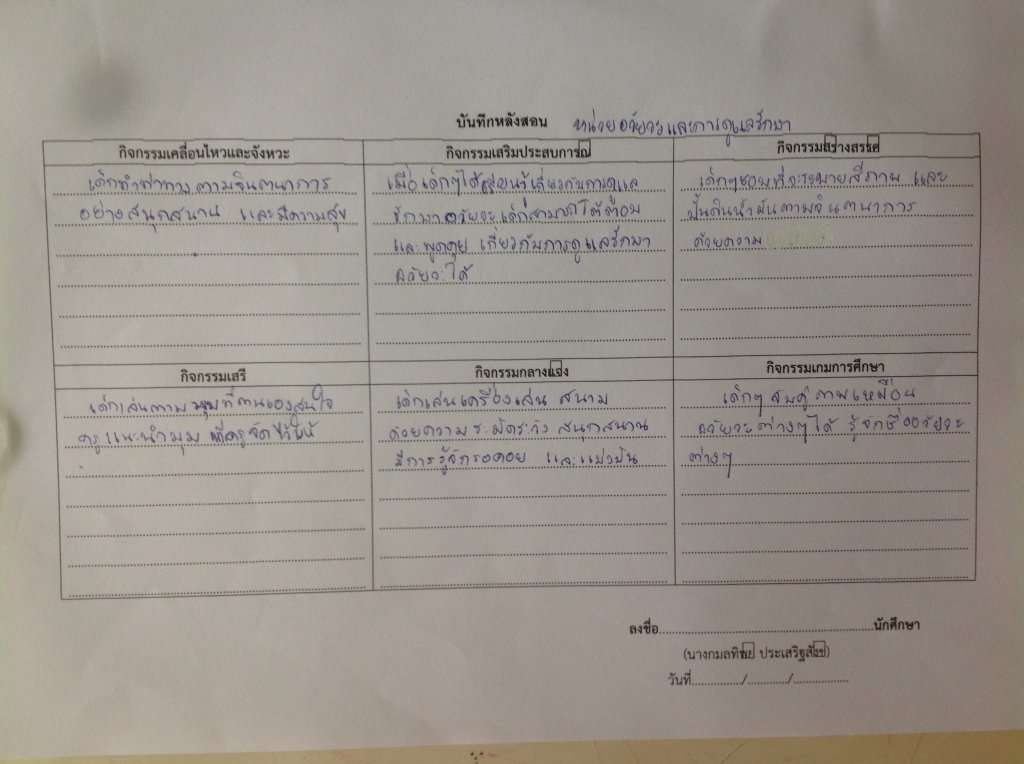 บันทึกหลังสอน หน่วยอวัยวะและการดูแลรักษา
กิจกรรมเคลื่อนไหวและจังหวะ
เด็กทำท่าทางตามจินตนาการ
อย่างสนุกสนาน และมีความสุข
กิจกรรมเสริมประสบการณ์
เมื่อเด็กๆได้เรียนรู้เกี่ยวกับการดูแล
รักษาอวัยวะเด็กสามารถโต้ตอบ
และพูดคุย เกี่ยวกับการดูแลรักษา
อวัยวะได้
กิจกรรมสร้างสรรค์
เด็กๆชอบที่จะระบายสีภาพ และ
ปั้นดินน้ำมันตามจินตนาการ
ด้วยความ
กิจกรรมเสรี
เด็กเล่นตามมุมที่ตนเองสนใจ
ครูแนะนำมุม ที่ครูจัดไว้ให้
กิจกรรมกลางแจ้ง
เด็กเล่นเครื่องเล่น สนาม
ด้วยความระมัดระวัง สนุกสนาน
มีการรู้จักรอคอย และแบ่งปัน
กิจกรรมเกมการศึกษา
เด็กๆ จับคู่ ภาพเหมือน
อวัยวะต่างๆได้ รู้จักชื่ออวัยวะ
ต่างๆ
ลงชื่อ......................................................นักศึกษา
(นางกมลทิพย์ ประเสริฐสังข์)
วันที่............../............/...............